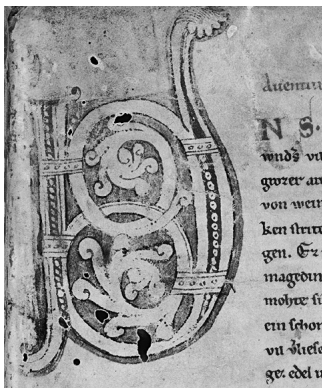 auentiu
N S.
wnds̄ vil
grozer ar
von wein
ken strite
gen. Er
magedin
mohte si
ein schon
vn̄ vliese
ge. edel u